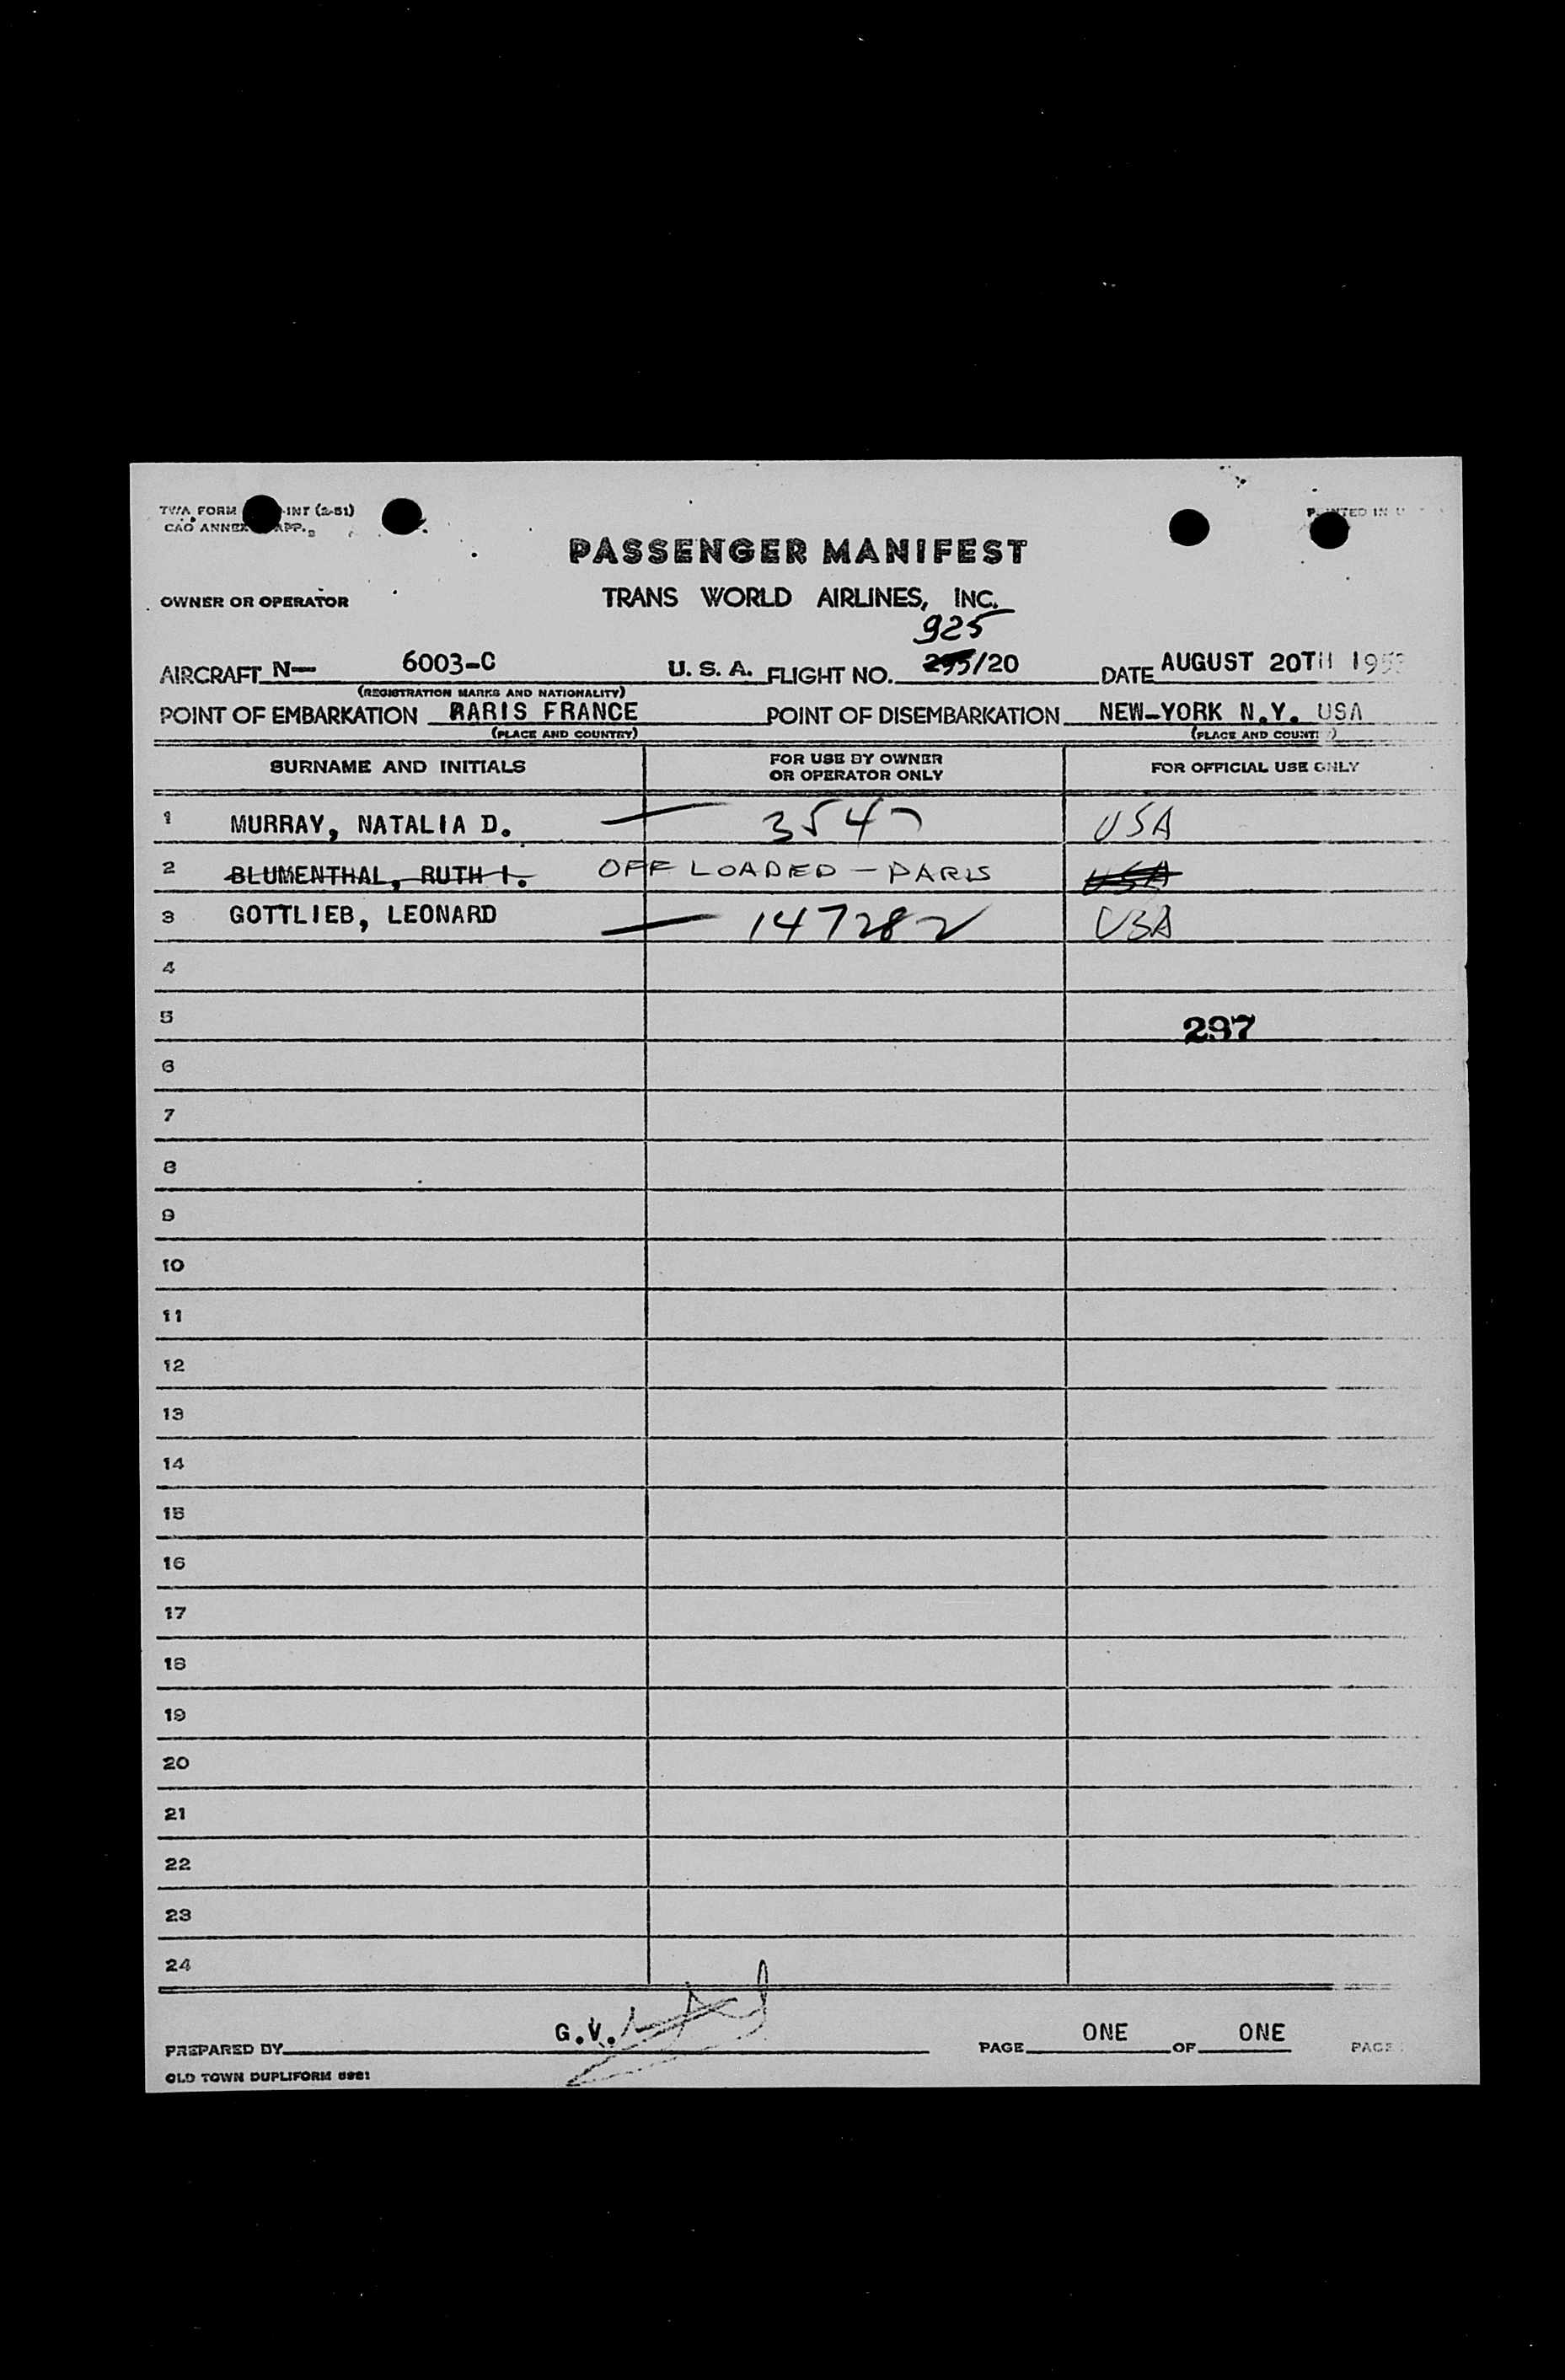 TWA FORM -INT (2-51)
CAO ANNEX APP.
PRINTED IN U
PASSENGER MANIFEST
OWNER OR OPERATOR TRANS WORLD AIRLINES, INC.
925
AIRCRAFT N— 6003-C U. S. A. FLIGHT NO. 295/20 DATE AUGUST 20TH 195
(REGISTRATION MARKS AND NATIONALITY)
POINT OF EMBARKATION PARIS FRANCE POINT OF DISEMBARKATION NEW-YORK N.Y. USA
(PLACE AND COUNTRY) (PLACE AND COUNTRY)
SURNAME AND INITIALS FOR USE BY OWNER OR OPERATOR ONLY FOR OFFICIAL USE ONLY
1 MURRAY, NATALIA D. — 3547 USA
2 BLUMENTHAL, RUTH I. OFF LOADED – PARIS USA
3 GOTTLIEB, LEONARD — 147282 USA
4
5 297
6
7
8
9
10
11
12
13
14
15
16
17
18
19
20
21
22
23
24
PREPARED BY G.V. PAGE ONE OF ONE PAGES
OLD TOWN DUPLIFORM 6981